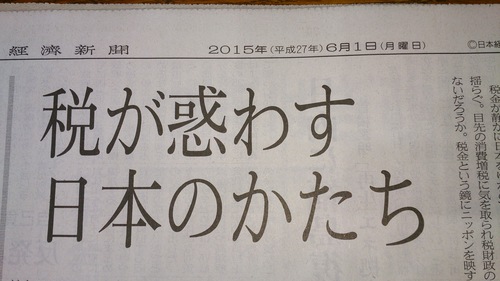 經濟新聞 2015年(平成27年)6月1日(月曜日) ©日本経
税が惑わす
日本のかたち
揺らぐ。目先の消費増税に気を取られ税財政の
ないだろうか。税金という鏡にニッポンを映す